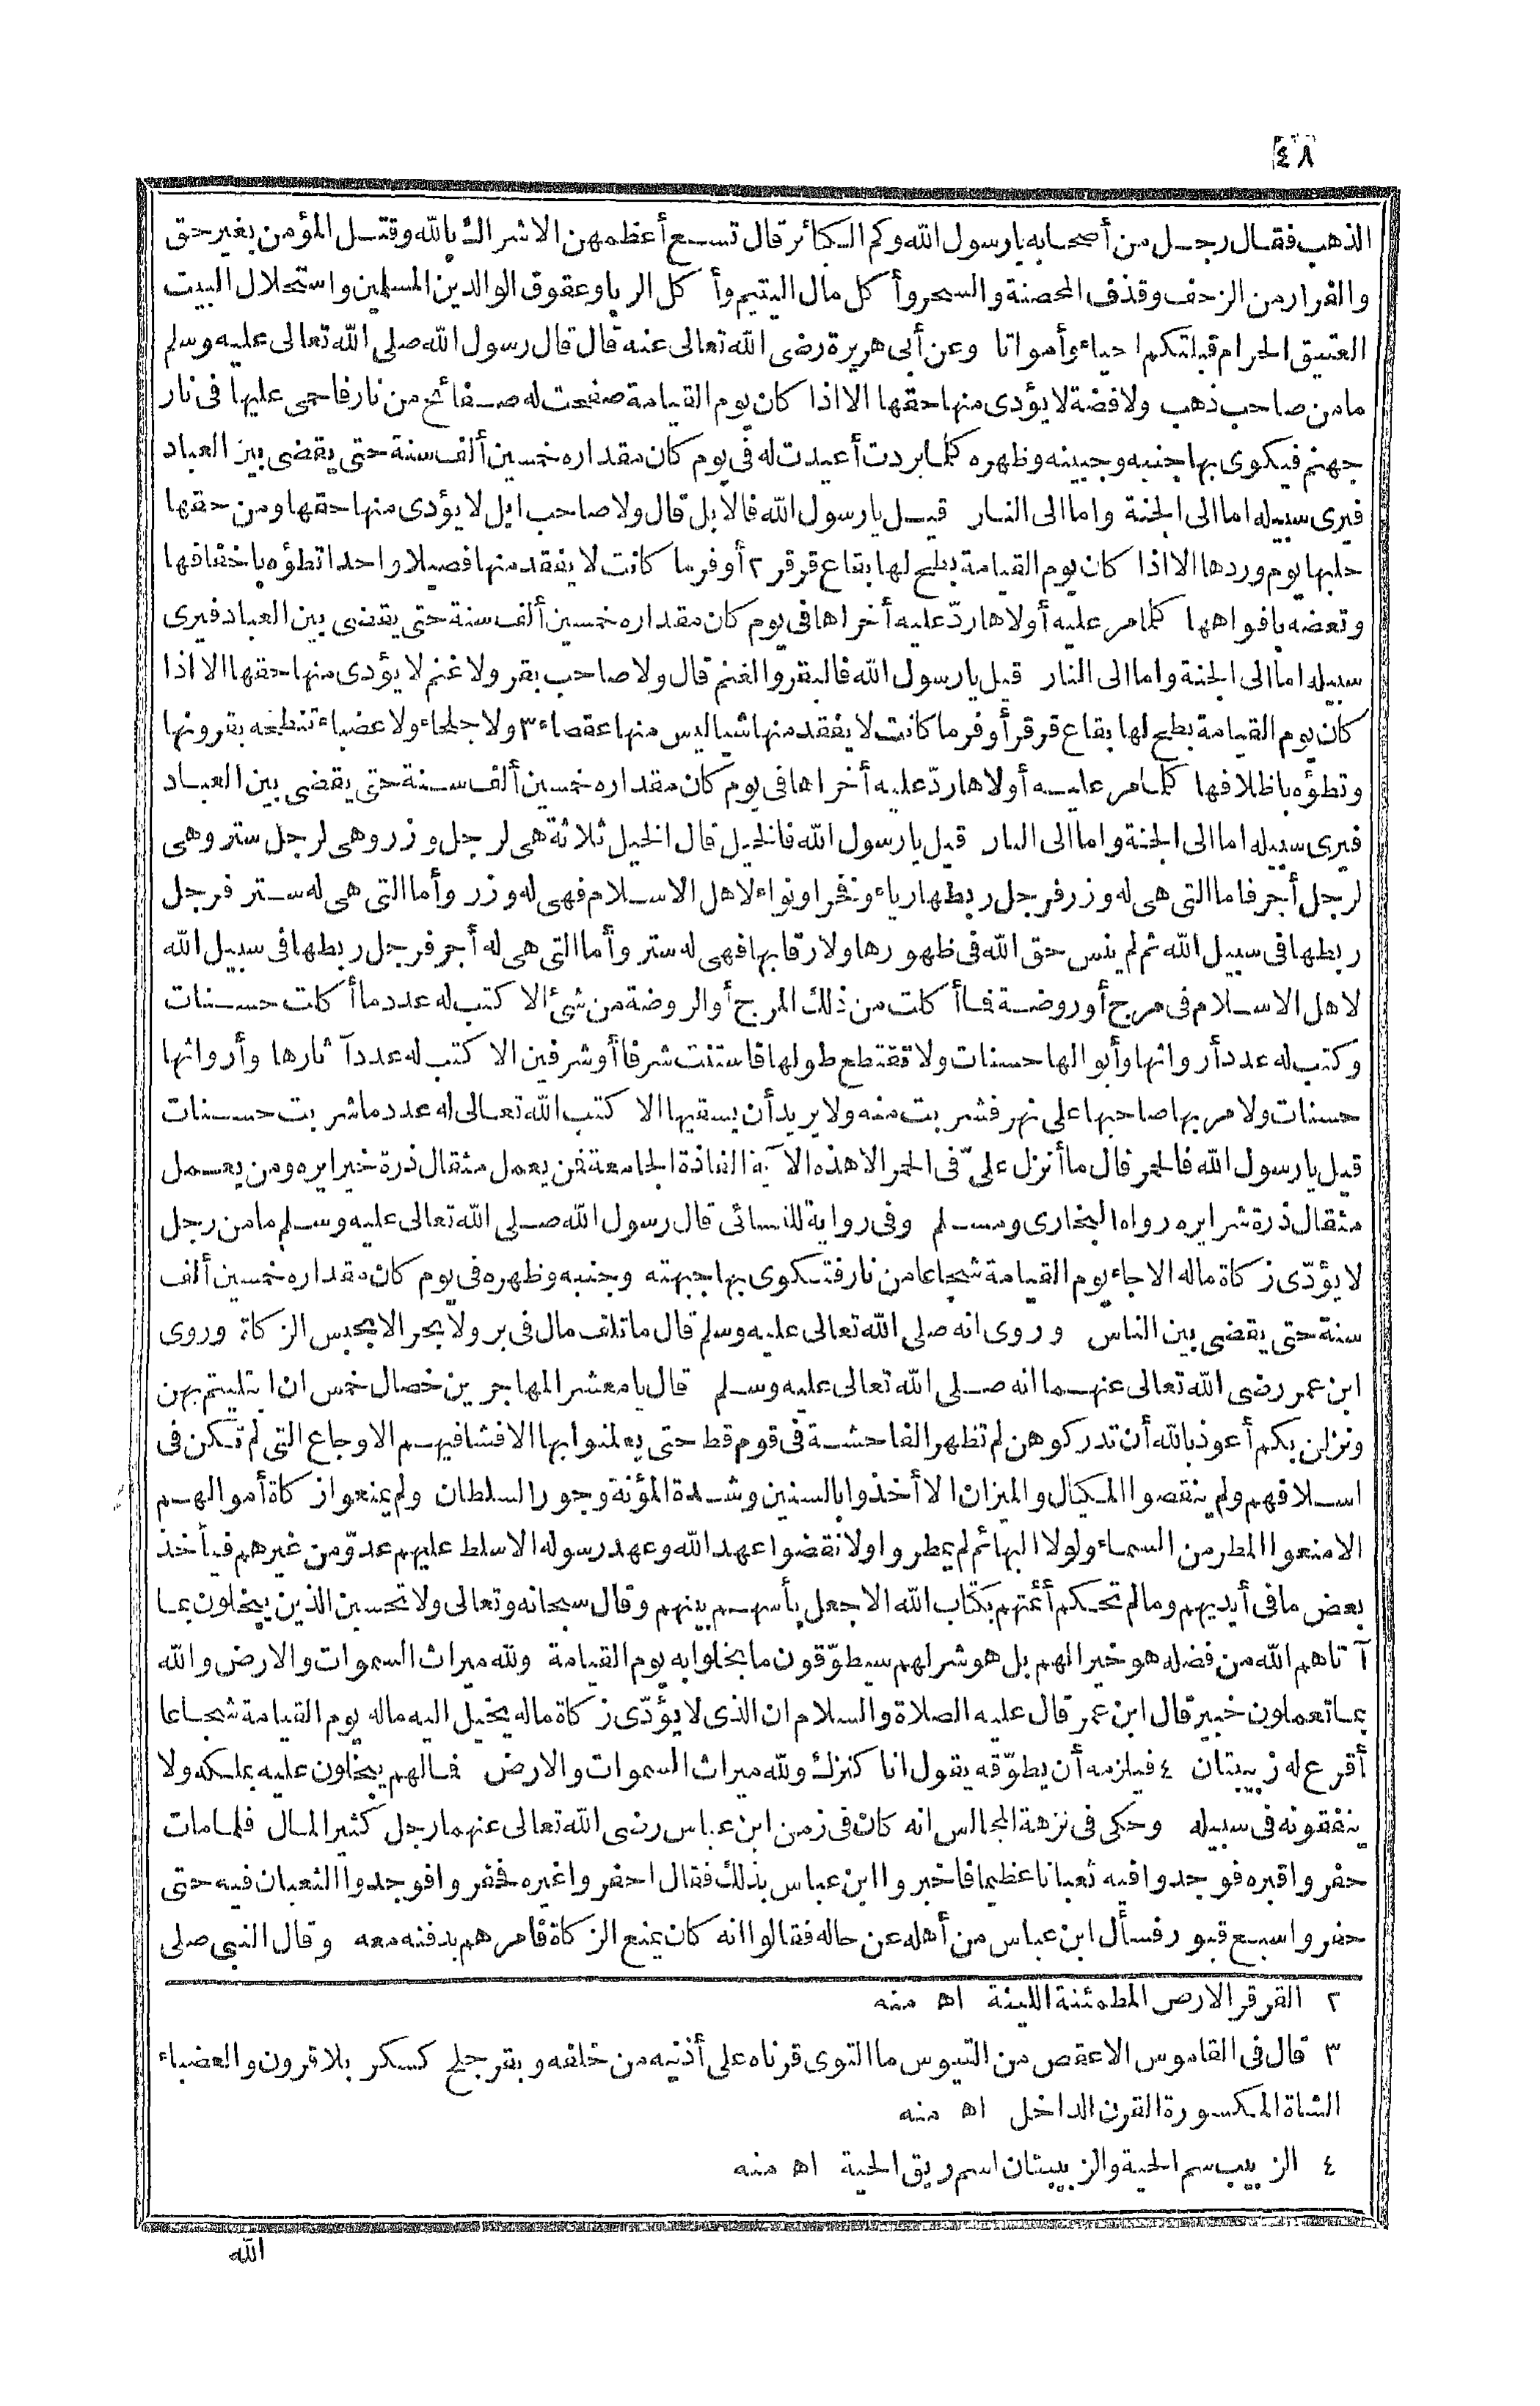 ٤٨
الذهب فقال رجل من أصحابه يا رسول الله وكم الكبائر قال تسع أعظمهن الاشراك بالله وقتل المؤمن بغير حق
والفرار من الزحف وقذف المحصنة والسحر وأكل مال اليتيم وأكل الربا وعقوق الوالدين المسلمين واستحلال البيت
العتيق الحرام قبلتكم احياء وأمواتا وعن أبى هريرة رضى الله تعالى عنه قال قال رسول الله صلى الله تعالى عليه وسلم
ما من صاحب ذهب ولا فضة لا يؤدى منها حقها الا اذا كان يوم القيامة صفحت له صفائح من نار فاحمى عليها فى نار
جهنم فيكوى بها جنبه وجبينه وظهره كلما بردت أعيدت له فى يوم كان مقداره خمسين ألف سنة حتى يقضى بين العباد
فيرى سبيله اما الى الجنة واما الى النار قيل يا رسول الله فالابل قال ولا صاحب ابل لا يؤدى منها حقها ومن حقها
حلبها يوم وردها الا اذا كان يوم القيامة بطح لها بقاع قرقر ٢ أوفر ما كانت لا يفقد منها فصيلا واحدا تطؤه باخفافها
وتعضه بافواهها كلما مر عليه أولاها ردّ عليه أخراها فى يوم كان مقداره خمسين ألف سنة حتى يقضى بين العباد فيرى
سبيله اما الى الجنة واما الى النار قيل يا رسول الله فالبقر والغنم قال ولا صاحب بقر ولا غنم لا يؤدى منها حقها الا اذا
كان يوم القيامة بطح لها بقاع قرقر أوفر ما كانت لا يفقد منها شيا ليس منها عقصاء ٣ ولا جلحاء ولا عضباء تنطحه بقرونها
وتطؤه باظلافها كلما مر عليه أولاها ردّ عليه أخراها فى يوم كان مقداره خمسين ألف سنة حتى يقضى بين العباد
فيرى سبيله اما الى الجنة واما الى النار قيل يا رسول الله فالخيل قال الخيل ثلاثة هى لرجل وزر وهى لرجل ستر وهى
لرجل أجر فاما التى هى له وزر فرجل ربطها رياء وفخرا ونواء لاهل الاسلام فهى له وزر وأما التى هى له ستر فرجل
ربطها فى سبيل الله ثم لم ينس حق الله فى ظهورها ولا رقابها فهى له ستر وأما التى هى له أجر فرجل ربطها فى سبيل الله
لاهل الاسلام فى مرج أو روضة فما أكلت من ذلك المرج أو الروضة من شئ الا كتب له عدد ما أكلت حسنات
وكتب له عدد أرواثها وأبوالها حسنات ولا تقتطع طولها فاستنت شرفا أو شرفين الا كتب له عدد آثارها وأرواثها
حسنات ولا مر بها صاحبها على نهر فشربت منه ولا يريد أن يسقيها الا كتب الله تعالى له عدد ما شربت حسنات
قيل يا رسول الله فالحمر قال ما أنزل علىّ فى الحمر الا هذه الآية الفاذة الجامعة فمن يعمل مثقال ذرة خيرا يره ومن يعمل
مثقال ذرة شرا يره رواه البخارى ومسلم وفى رواية للنسائى قال رسول الله صلى الله تعالى عليه وسلم ما من رجل
لا يؤدّى زكاة ماله الا جاء يوم القيامة شجاعا من نار فتكوى بها جبهته وجنبه وظهره فى يوم كان مقداره خمسين ألف
سنة حتى يقضى بين الناس وروى انه صلى الله تعالى عليه وسلم قال ما تلف مال فى بر ولا بحر الا بحبس الزكاة وروى
ابن عمر رضى الله تعالى عنهما انه صلى الله تعالى عليه وسلم قال يا معشر المهاجرين خصال خمس ان ابتليتم بهن
ونزلن بكم أعوذ بالله أن تدركوهن لم تظهر الفاحشة فى قوم قط حتى يعلنوا بها الا فشا فيهم الاوجاع التى لم تكن فى
اسلافهم ولم ينقصوا المكيال والميزان الا أخذوا بالسنين وشدة المؤنة وجور السلطان ولم يمنعوا زكاة أموالهم
الا منعوا المطر من السماء ولولا البهائم لم يمطروا ولا نقضوا عهد الله وعهد رسوله الا سلط عليهم عدوّ من غيرهم فيأخذ
بعض ما فى أيديهم وما لم تحكم أئمتهم بكتاب الله الا جعل بأسهم بينهم وقال سبحانه وتعالى ولا تحسبن الذين يبخلون بما
آتاهم الله من فضله هو خيرا لهم بل هو شر لهم سيطوّقون ما بخلوا به يوم القيامة ولله ميراث السموات والارض والله
بما تعملون خبير قال ابن عمر قال عليه الصلاة والسلام ان الذى لا يؤدّى زكاة ماله يخيل اليه ماله يوم القيامة شجاعا
أقرع له زبيبتان ٤ فيلزمه أن يطوّقه يقول انا كنزك ولله ميراث السموات والارض فما لهم يبخلون عليه بملكه ولا
ينفقونه فى سبيله وحكى فى نزهة المجالس انه كان فى زمن ابن عباس رضى الله تعالى عنهما رجل كثير المال فلما مات
حفروا قبره فوجدوا فيه ثعبانا عظيما فاخبروا ابن عباس بذلك فقال احفروا غيره فحفروا فوجدوا الثعبان فيه حتى
حفروا سبع قبور فسأل ابن عباس من أهله عن حاله فقالوا انه كان يمنع الزكاة فامرهم بدفنه معه وقال النبى صلى
٢ القرقر الارض المطمئنة اللينة اه منه
٣ قال فى القاموس الاعقص من التيوس ما التوى قرناه على أذنيه من خلفه وبقر جلح كسكر بلا قرون والعضباء
الشاة المكسورة القرن الداخل اه منه
٤ الزبيب سم الحية والزبيبتان اسم ريق الحية اه منه
الله